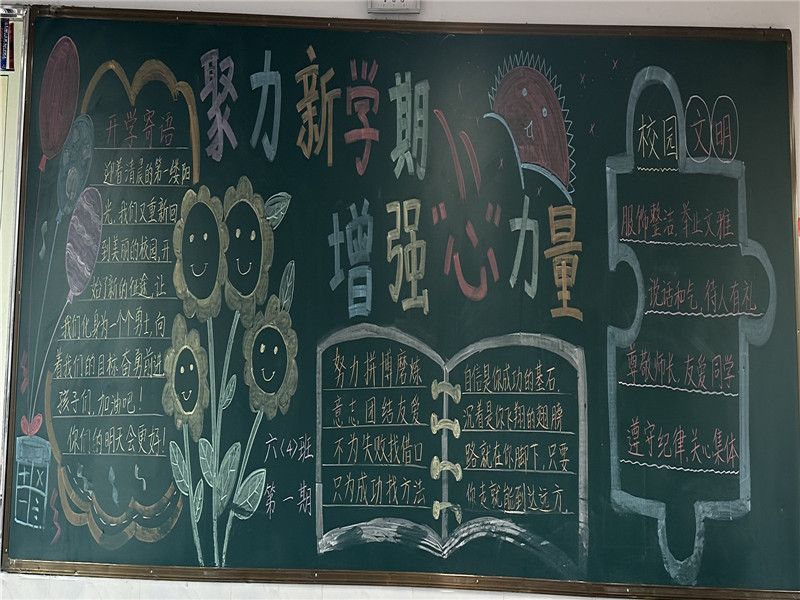 聚力新学期
增强“心”力量
开学寄语
迎着清晨的第一缕阳
光，我们又重新回
到美丽的校园，开
始了新的征途，让
我们化身为一个个勇士，向
着我们的目标奋勇前进
孩子们，加油吧！
你们的明天会更好！
六(4)班
第一期
努力拼搏磨炼
意志团结友爱
不为失败找借口
只为成功找方法
自信是你成功的基石，
沉着是你飞翔的翅膀
路就在你脚下，只要
你走就能到达远方。
校园文明
服饰整洁，举止文雅
说话和气，待人有礼
尊敬师长，友爱同学
遵守纪律，关心集体